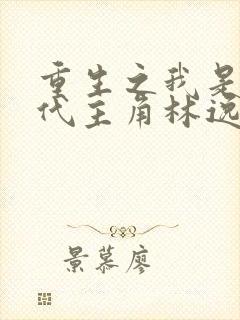 重生之我是
代主角林远
景慕廖